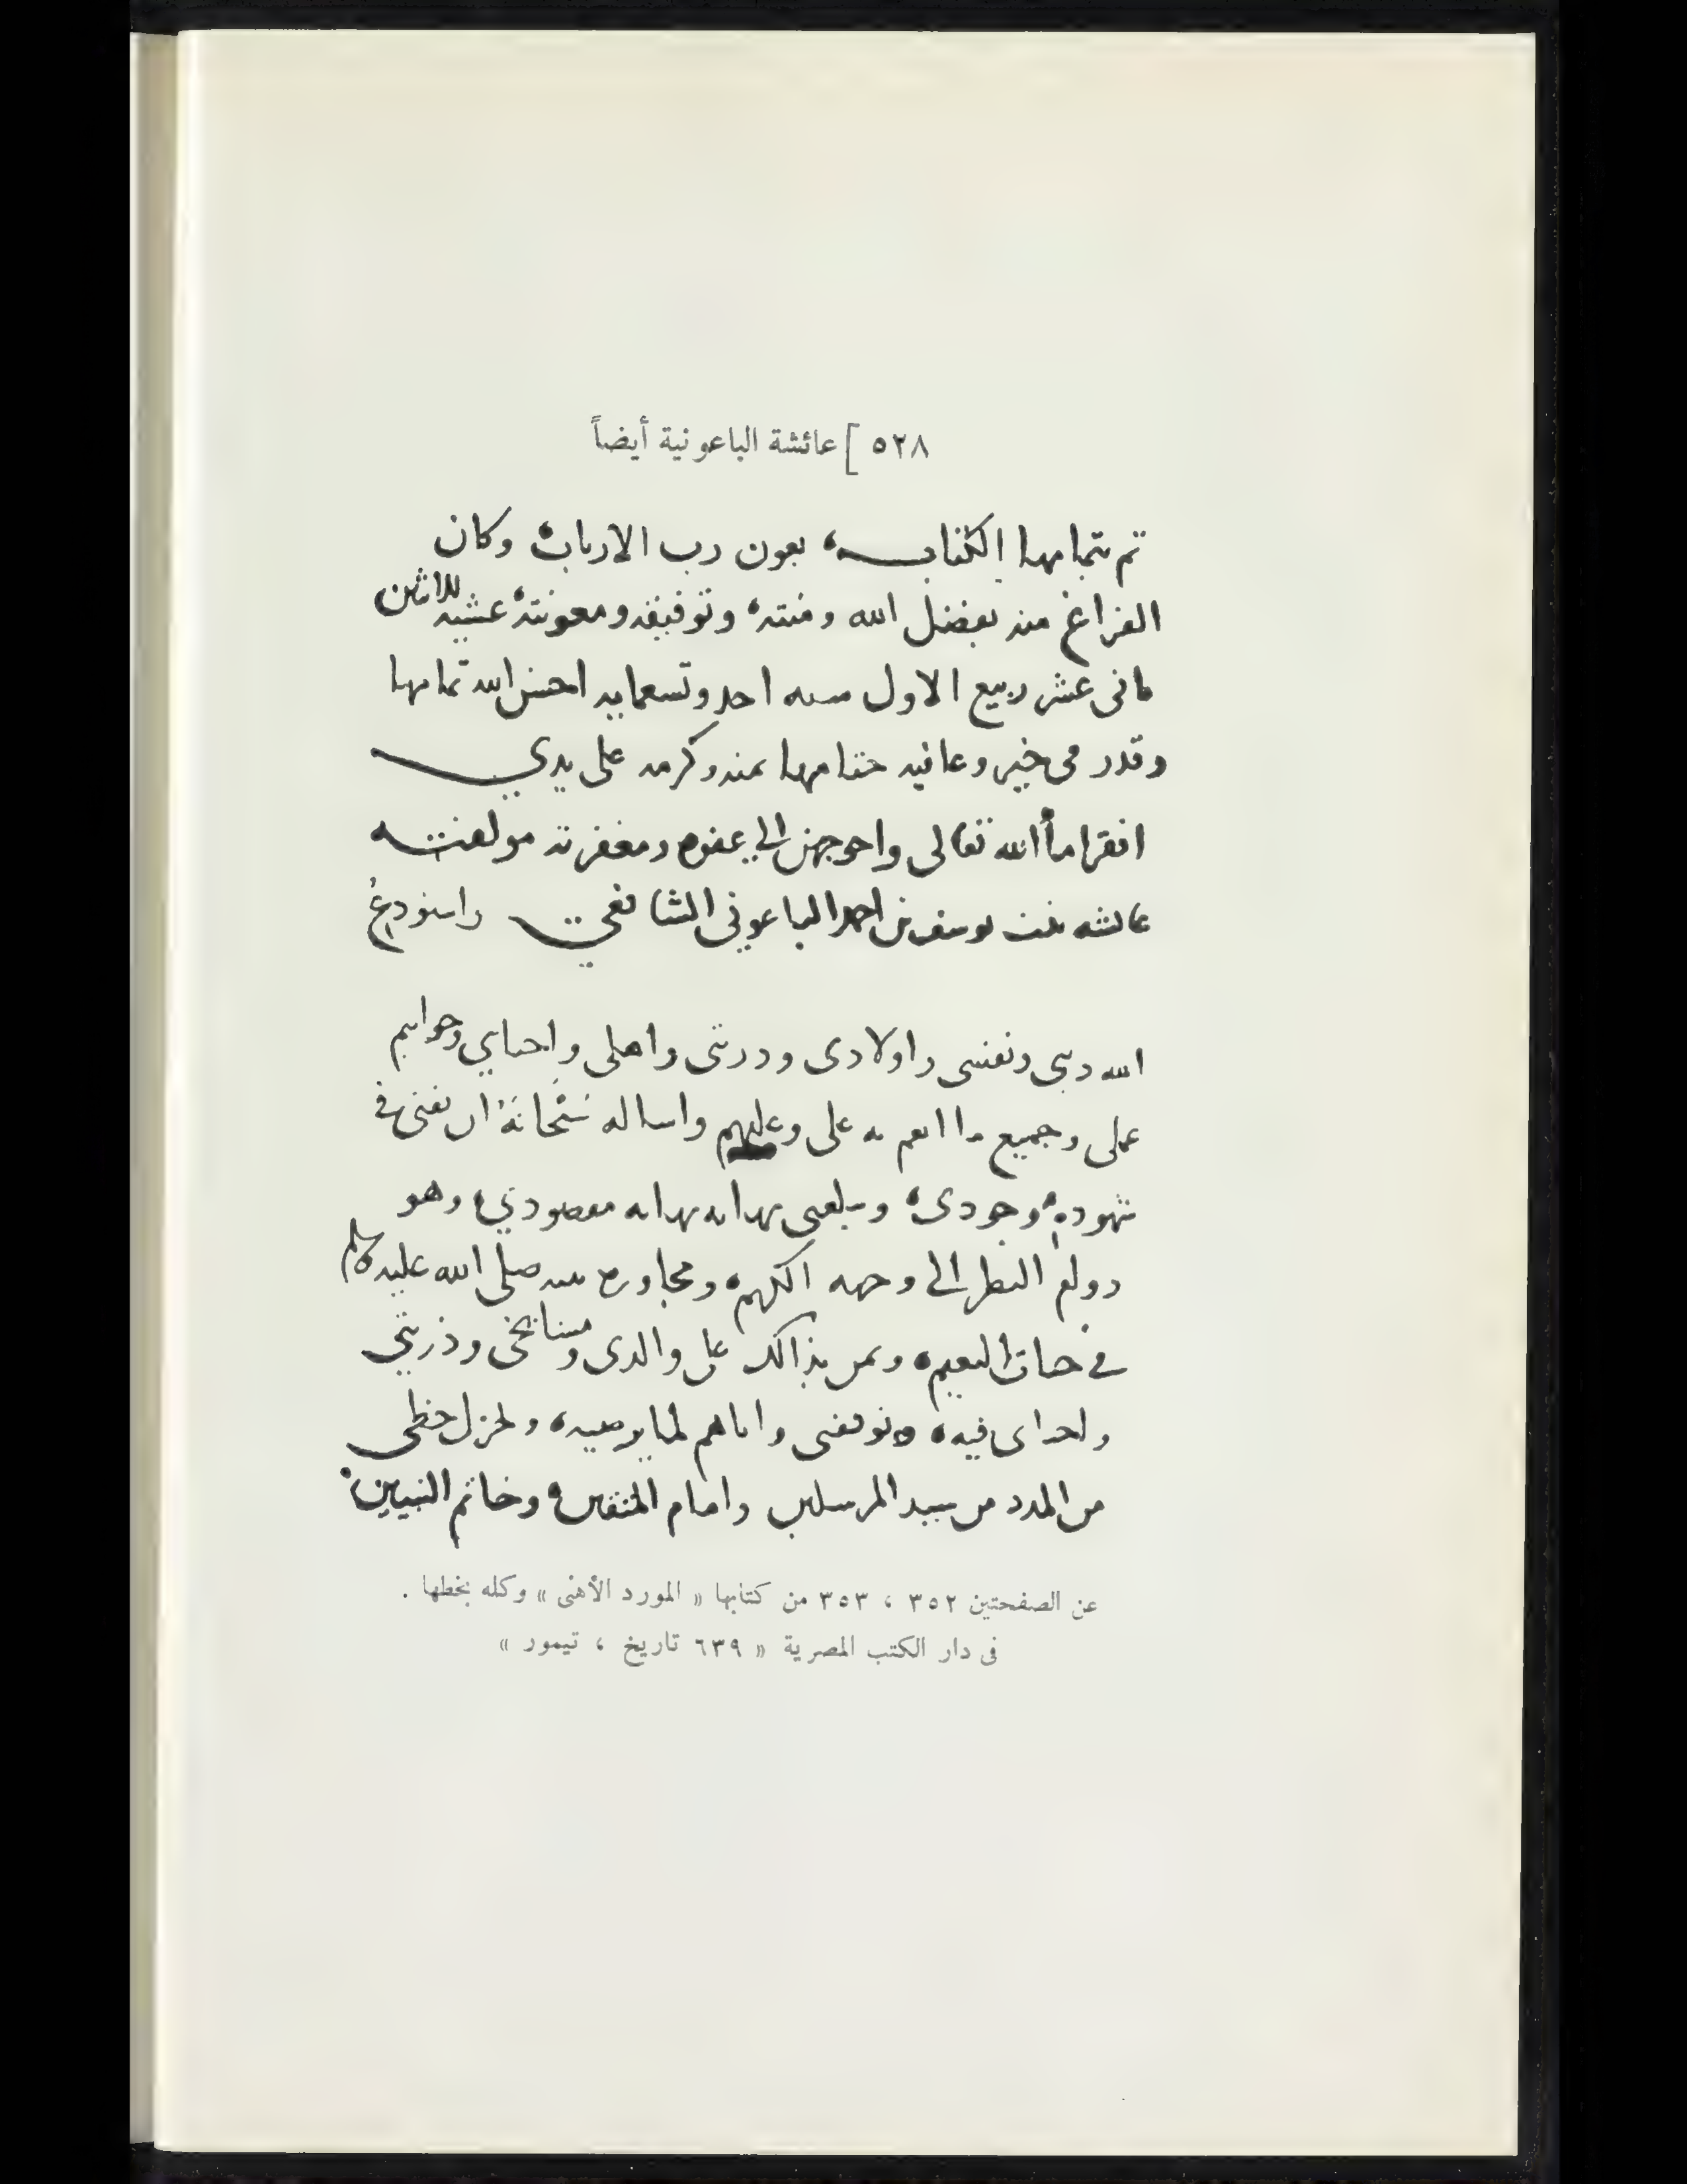 ٥٢٨ ] عائشة الباعونية أيضاً
تم بتمامها الكتاب، بعون رب الارباب، وكان
الفراغ منه بفضل الله ومنته، وتوفيقه ومعونته، عشية الاثنين
ثانى عشر ربيع الاول سنه احد وتسعمايه احسن الله تمامها
وقدر فى خير وعافيه ختامها بمنه وكرمه على يدي
افقر اماأ الله تعالى واحوجهن الي عفوه ومغفرته مولفته
عائشه بنت يوسف بن احمد الباعوني الشافعي واستودع
الله ديني ونفسى واولادى وذريتى واهلى واحبابي وخواتيم
عملى وجميع ما انعم به على وعليهم واساله سبحانه ان يفنى فى
شهوده، وجودى، ويبلغنى نهايه نهايه مقصودي، وهو
دوام النظر الى وجهه الكريم، ومجاورة نبيه صلى الله عليه وسلم
في جنات النعيم، ويمن بذالك على والدى ومشايخى وذريتي
واحباى فيه، ويوفقنى واياهم لما يرضيه، ويجزل حظى
من المدد من سيد المرسلين وامام المتقين، وخاتم النبيين،
عن الصفحتين ٣٥٢ ، ٣٥٣ من كتابها « المورد الأهنى » وكله بخطها .
فى دار الكتب المصرية « ٦٣٩ تاريخ ، تيمور »